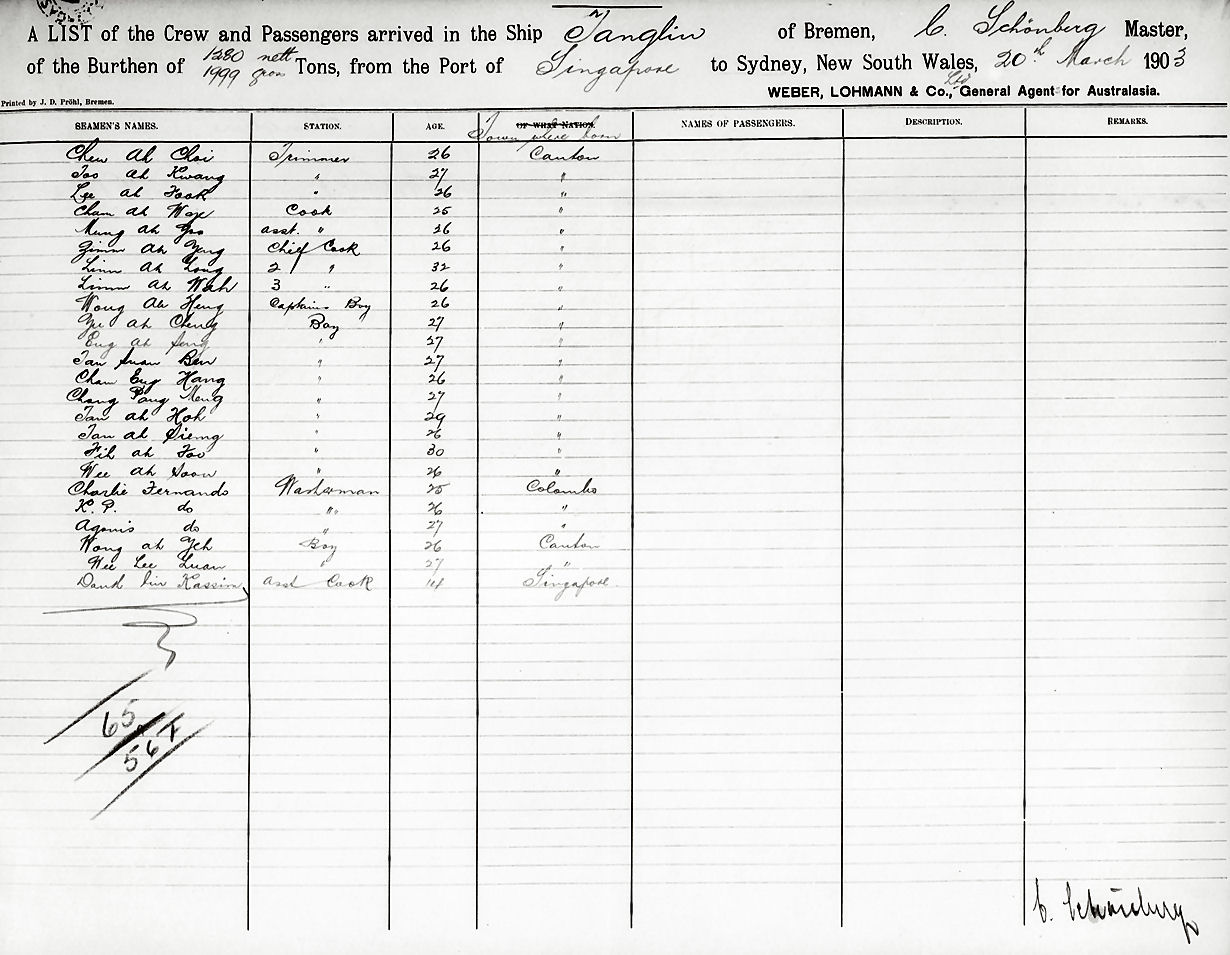 A LIST of the Crew and Passengers arrived in the Ship Tanglin of Bremen, C. Schönberg Master,
of the Burthen of 1280 nett 1999 gross Tons, from the Port of Singapore to Sydney, New South Wales, 20th March 1903
WEBER, LOHMANN & Co., Ltd General Agent for Australasia.
Printed by J. D. Pröhl, Bremen.
SEAMEN'S NAMES. STATION. AGE. OF WHAT NATION. NAMES OF PASSENGERS. DESCRIPTION. REMARKS.
Town where born
Chew Ah Choi Trimmer 26 Canton
Foo Ah Kwang " 27 "
Lee ah Fook " 26 "
Cham ah Cook 25 "
ah asst. " "
Ah Chief Cook 26 "
Linn Ah Long 2 / " 32 "
Limm Ah Wah 3 " 26 "
Wong Ah Heng Captains Boy 26 "
ah Cheng Boy 27 "
Eug ah Seng " 27 "
Tan Suan Bin " 27 "
Cham Eug Hang " 26 "
Chong Pang Meng " 27 "
Tan ah Hoh " 29 "
Tan ah Siemg " 26 "
Fih ah Foo " 30 "
Wee ah Soon " 26 "
Charlie Fernando Washerman 25 Colombo
K. P. do " 26 "
Agonis do " 27 "
Wong ah Yeh Boy 26 Canton
Wee Lee Luan " 27 "
Daud bin Kassim asst Cook 14 Singapore.
65
567
C. Schönberg